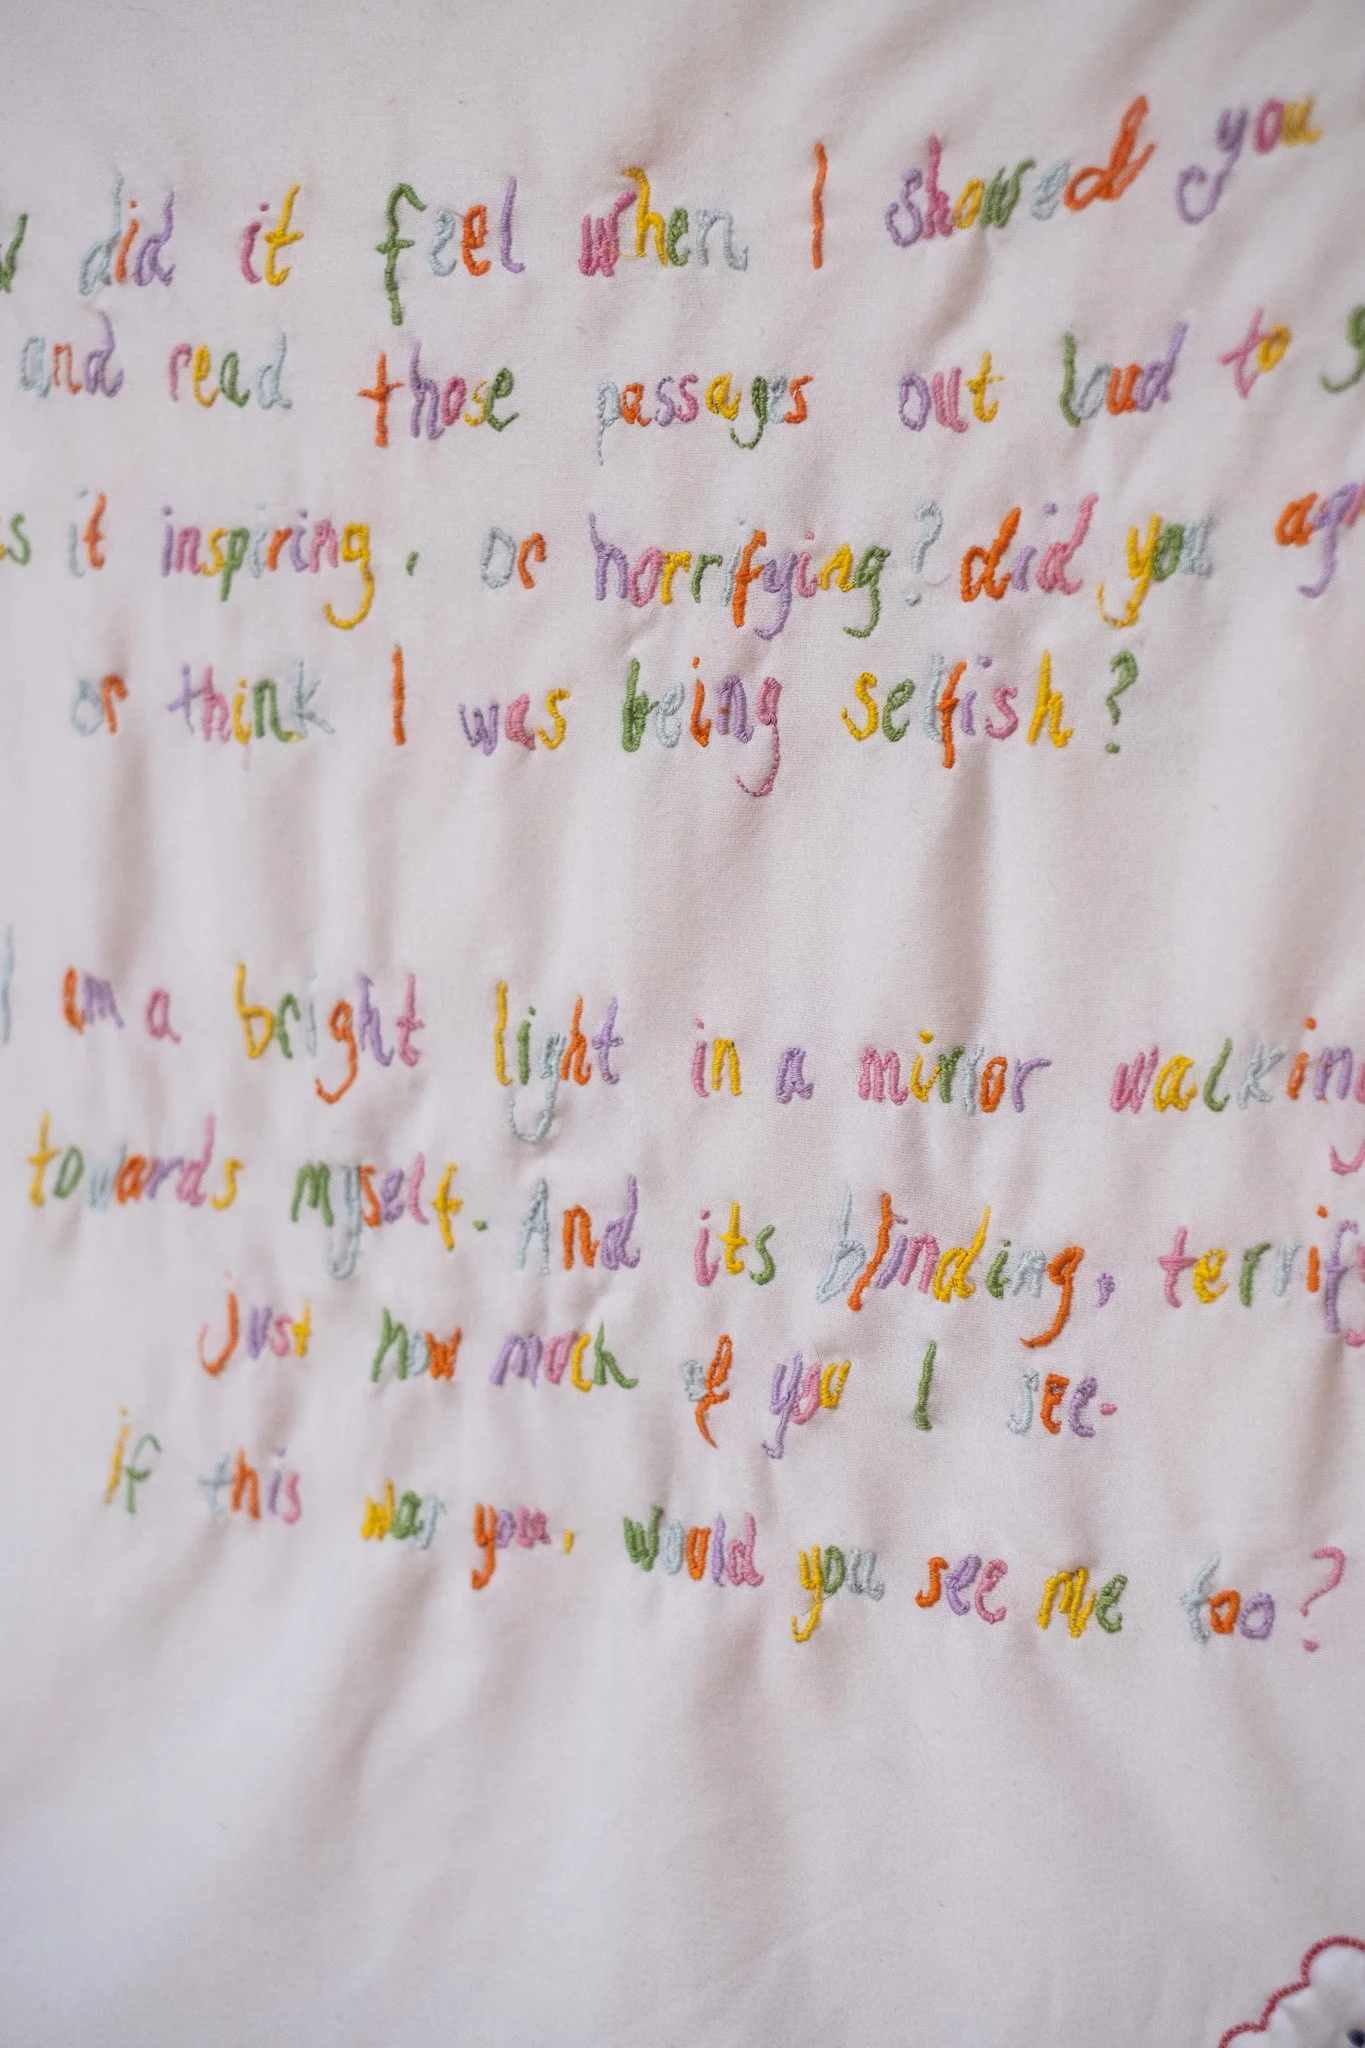 did it feel when I showed you
and read those passages out loud to
it inspiring, or horrifying? did you
or think I was being selfish?
I am a bright light in a mirror walking
towards myself. And its blinding,
just how much of you I see.
if this was you, would you see me too?